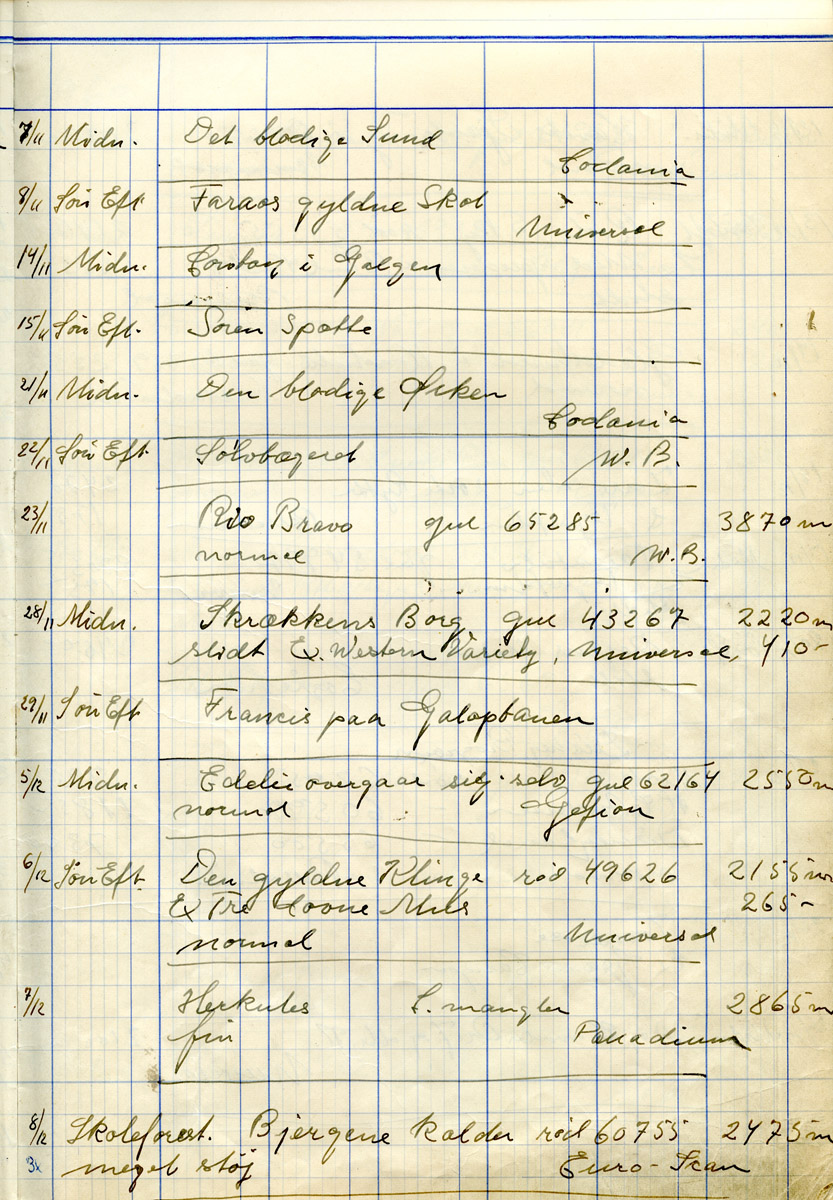 7/11 Midn. Det blodige Sund
Codania
8/11 Søn Eft Faraos gyldne Skat
Universal
14/11 Midn. Cowboy i Galgen
15/11 Søn Eft. Søren Spætte
21/11 Midn. Den blodige Ørken
Codania
22/11 Søn Eft Sølvbægeret W. B.
23/11 Rio Bravo gul 65285 3870 m
normal W.B.
28/11 Midn. Skrækkens Borg gul 43267 2220 m
slidt Ex. Western Variety, Universal, 410-
29/11 Søn Eft Francis paa Galopbanen
5/12 Midn. overgaar sig selv gul 62164 2550 m
normal Gefion
6/12 Søn Eft. Den gyldne Klinge rød 49626 2155 m
Ex Tre Mus 265-
normal Universal
7/12 Herkules C. mangler 2865 m
fin Palladium
8/12 Skoleforest. Bjergene kalder rød 60755 2475 m
3x meget støj Euro-Scan